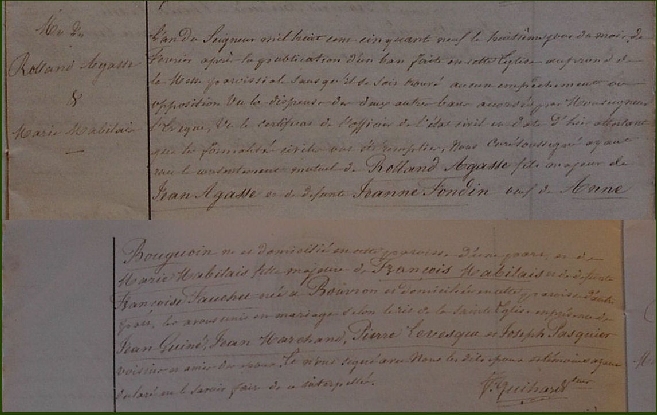 M. de
Rolland Agasse
&
Marie Mabilais
L'an du Seigneur mil huit cent cinquant neuf le huitième jour du mois de
Fevrier après la publication d'un ban faite en notre Eglise au prône de
la Messe paroissiale sans qu'il se soit trouvé aucun empêchement ou
opposition Vu la dispense des deux autres bans accordée par Monseigneur
l'Evêque, Vu le certificat de l'officier de l'état civil en date d'hier attestant
que les formalités civiles ont été remplies, Nous Curé soussigné ayant
reçu le consentement mutuel de Rolland Agasse fils majeur de
Jean Agasse et de défunte Jeanne Fondin veuf de Anne
Rouguoin né et domicilié en cette paroisse d'une part, et de
Marie Mabilais fille majeure de François Mabilais et de défunte
Françoise née à Bouvron et domiciliée en cette paroisse d'autre
part, les avons unis en mariage selon le rite de la Sainte Eglise en présence de
Jean Guiné, Jean Marchand, Pierre Levesque et Joseph Pasquier
voisins et amis des Les dits époux et témoins ayant
déclaré ne le savoir faire de ce interpellés.